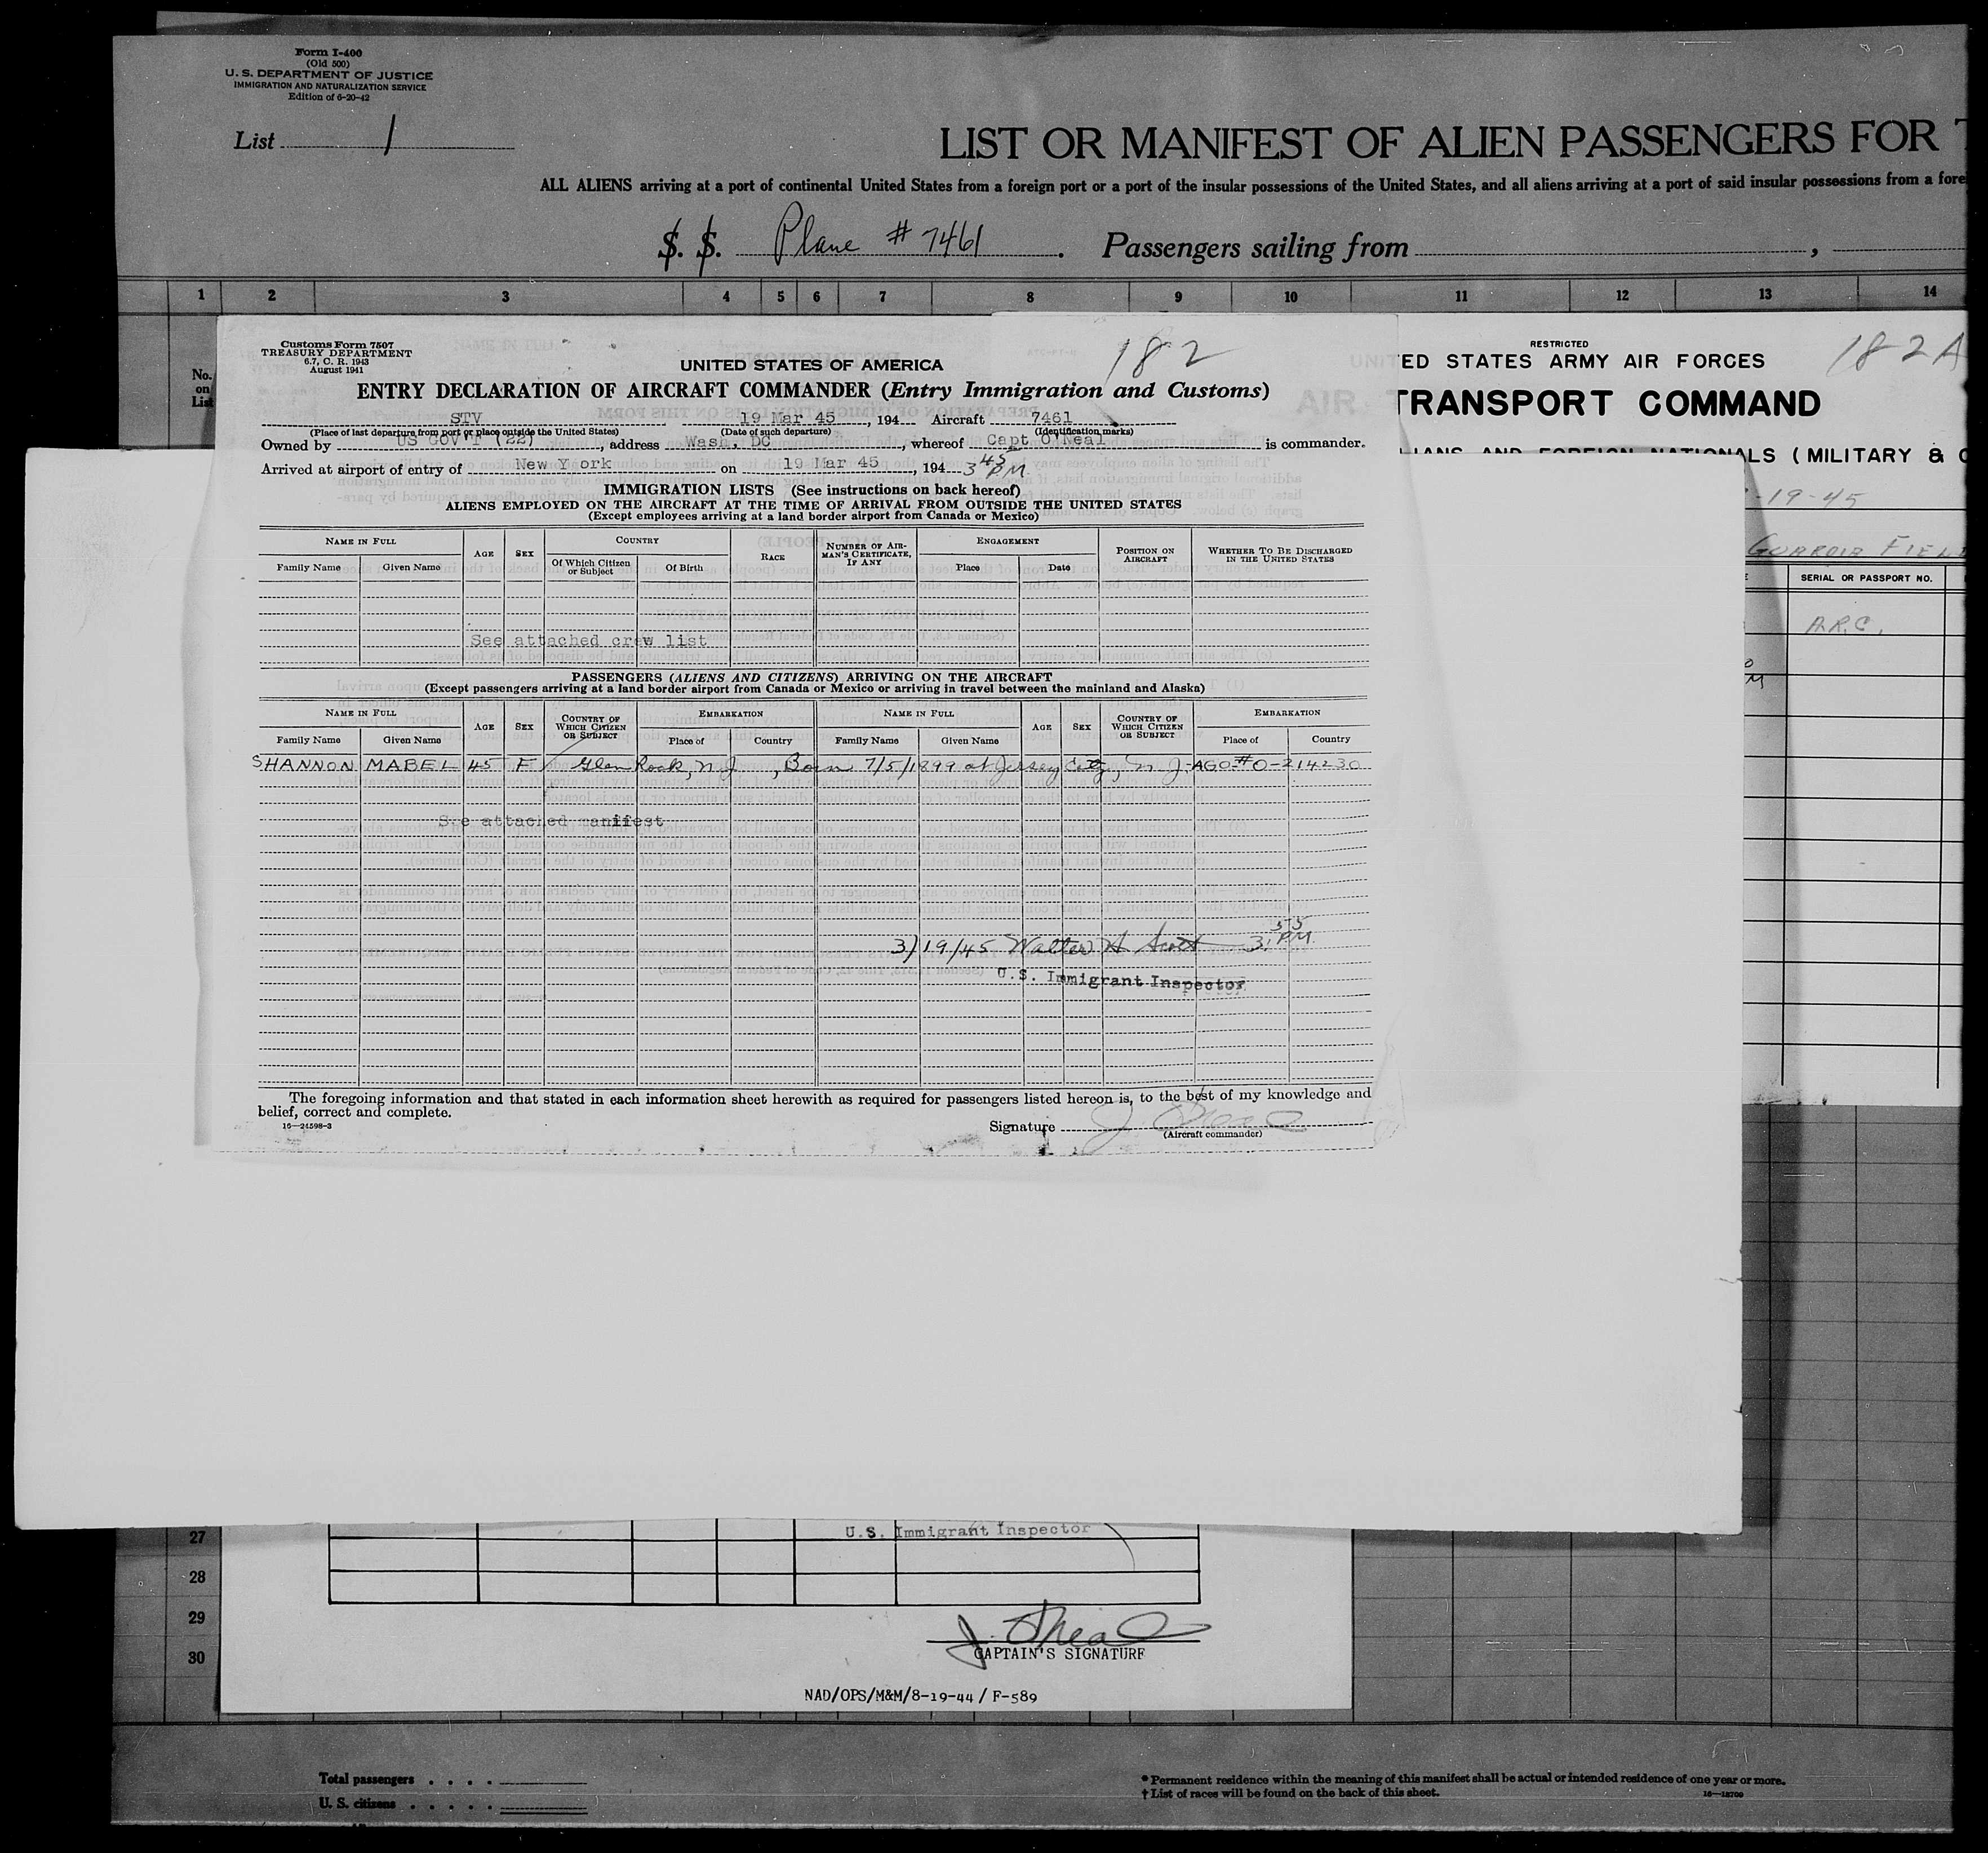 Form I-400
(Old 500)
U. S. DEPARTMENT OF JUSTICE
IMMIGRATION AND NATURALIZATION SERVICE
Edition of 6-20-42
List 1
LIST OR MANIFEST OF ALIEN PASSENGERS FOR
ALL ALIENS arriving at a port of continental United States from a foreign port or a port of the insular possessions of the United States, and all aliens arriving at a port of said insular possessions from a fore
S. S. Plane # 7461. Passengers sailing from ,
1 2 3 4 5 6 7 8 9 10 11 12 13 14
No. on List
Customs Form 7507
TREASURY DEPARTMENT
6.7, C. R. 1943
August 1941
182
UNITED STATES OF AMERICA
ENTRY DECLARATION OF AIRCRAFT COMMANDER (Entry Immigration and Customs)
STV 19 Mar 45, 194 Aircraft 7461
(Place of last departure from port or place outside the United States) (Date of such departure) (Identification marks)
Owned by US GOV'T (22), address Wash, DC, whereof Capt O'Neal is commander.
Arrived at airport of entry of New York on 19 Mar 45, 194 3 45 PM
IMMIGRATION LISTS (See instructions on back hereof)
ALIENS EMPLOYED ON THE AIRCRAFT AT THE TIME OF ARRIVAL FROM OUTSIDE THE UNITED STATES
(Except employees arriving at a land border airport from Canada or Mexico)
NAME IN FULL AGE SEX COUNTRY RACE NUMBER OF AIRMAN'S CERTIFICATE, IF ANY ENGAGEMENT POSITION ON AIRCRAFT WHETHER TO BE DISCHARGED IN THE UNITED STATES
Family Name Given Name Of Which Citizen or Subject Of Birth Place Date
See attached crew list
PASSENGERS (ALIENS AND CITIZENS) ARRIVING ON THE AIRCRAFT
(Except passengers arriving at a land border airport from Canada or Mexico or arriving in travel between the mainland and Alaska)
NAME IN FULL AGE SEX COUNTRY OF WHICH CITIZEN OR SUBJECT EMBARKATION NAME IN FULL AGE SEX COUNTRY OF WHICH CITIZEN OR SUBJECT EMBARKATION
Family Name Given Name Place of Country Family Name Given Name Place of Country
SHANNON MABEL 45 F Glen Rock, N J, Born 7/5/1899 at Jersey City, N J, AGO #0-214230
See attached manifest
3/19/45 Walter H Scott 3:55 PM
U.S. Immigrant Inspector
The foregoing information and that stated in each information sheet herewith as required for passengers listed hereon is, to the best of my knowledge and
belief, correct and complete.
16—24598-3
Signature J O'Neal
(Aircraft commander)
RESTRICTED
ED STATES ARMY AIR FORCES
182A
TRANSPORT COMMAND
LIANS AND FOREIGN NATIONALS (MILITARY &
-19-45
SERIAL OR PASSPORT NO.
A.R.C.
27
28
29
30
U.S. Immigrant Inspector
J. O'Neal
CAPTAIN'S SIGNATURE
NAD/OPS/M&M/8-19-44 / F-589
Total passengers . . . .
U. S. citizens . . . . .
* Permanent residence within the meaning of this manifest shall be actual or intended residence of one year or more.
† List of races will be found on the back of this sheet.
16—18709